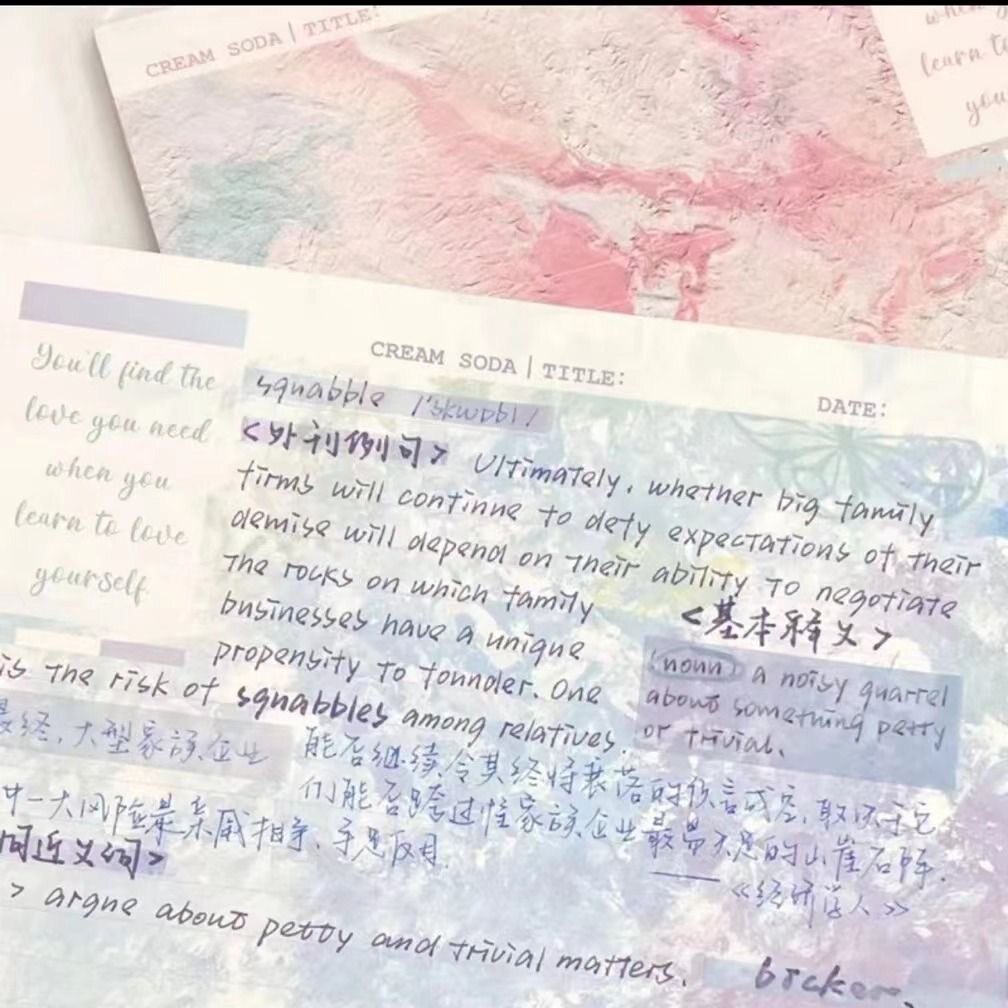 CREAM SODA | TITLE:
learn to
you
You'll find the
love you need
when you
learn to love
yourself.
CREAM SODA | TITLE:
DATE:
squabble /'skwɒbl/
<外刊例句> Ultimately, whether big family
firms will continue to defy expectations of their
demise will depend on their ability to negotiate
the rocks on which family
businesses have a unique
propensity to founder. One
is the risk of squabbles among relatives.
<基本释义>
(noun) a noisy quarrel
about something petty
or trivial.
最终,大型家族企业 能否继续令其终将衰落的预言成空,取决于它
们能否跨过惟家族企业最易不足的山崖石阵.
一大风险是亲戚相争、手足反目.
《经济学人》
近义词>
> argue about petty and trivial matters.
bicker